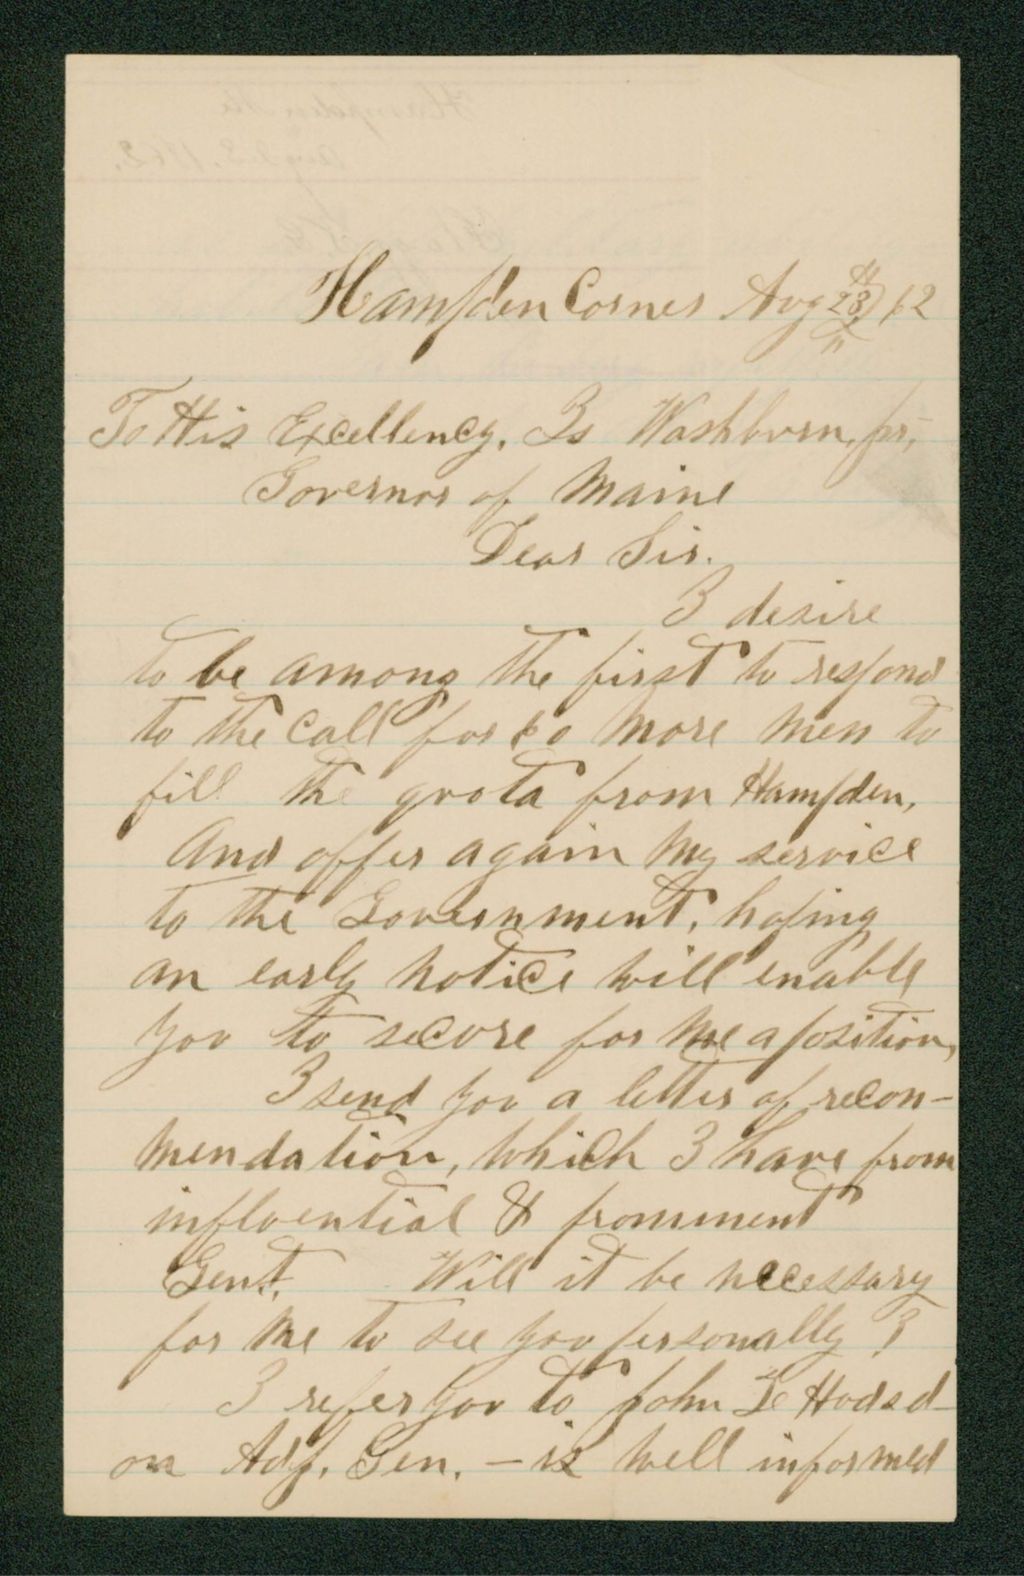 Hampden Corner Aug 23th /62
To His Excellency, Is Washburn, jr,
Governor of Maine
Dear Sir.
I desire
to be among the first to respond
to the call for 60 more men to
fill the quota from Hampden,
And offer again my service
to the Government, hoping
an early notice will enable
you to secure for me a position,
I send you a letter of recom-
mendation, which I have from
influential & prominent
Gent. Will it be necessary
for me to see you personally?
I refer you to John L Hodsd-
on Adj. Gen. – is well informed